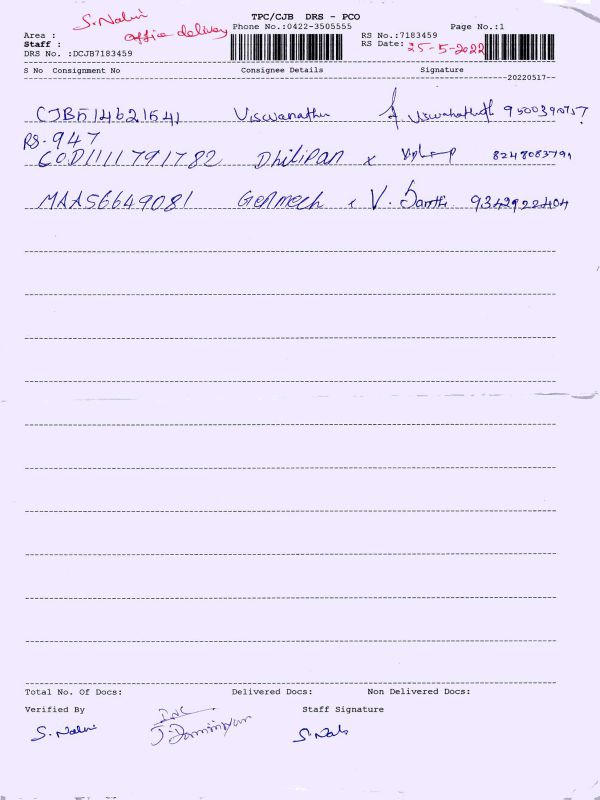 S. Nalini TPC/CJB DRS - PCO
office delivery Phone No.:0422-3505555 Page No.:1
Area : RS No.:7183459
Staff : RS Date: 25-5-2022
DRS No. :DCJB7183459
S No Consignment No Consignee Details Signature
20220517
CJB514621541 Viswanathan 9500390757
RS. 947
COD1111791782 Dhilipan x 8248083791
MAA56649081 Genmech x V. Santhi 9342922404
Total No. Of Docs: Delivered Docs: Non Delivered Docs:
Verified By Staff Signature
S. Nalini S. Nali